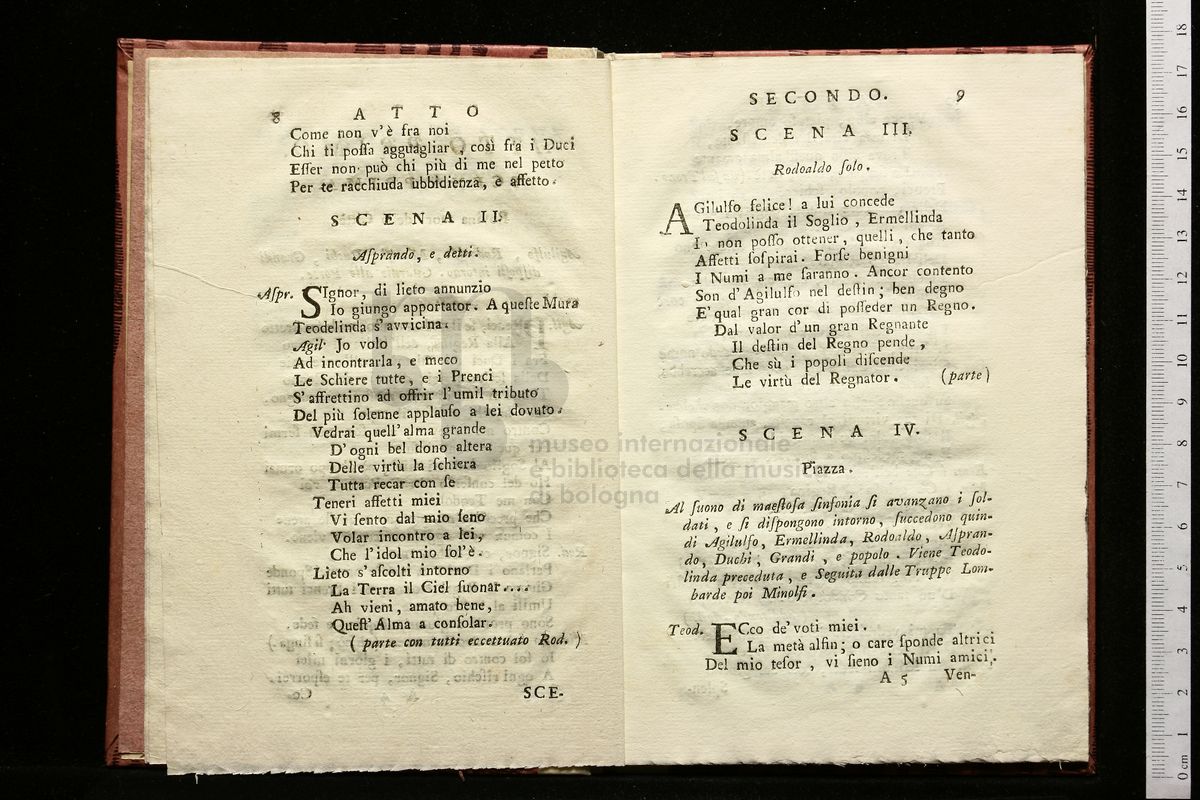 8 ATTO
Come non v'è fra noi
Chi ti possa agguagliar, così fra i Duci
Esser non può chi più di me nel petto
Per te racchiuda ubbidienza, e affetto.
SCENA II.
Asprando, e detti.
Aspr. SIgnor, di lieto annunzio
Io giungo apportator. A queste Mura
Teodelinda s'avvicina.
Agil. Jo volo
Ad incontrarla, e meco
Le Schiere tutte, e i Prenci
S'affrettino ad offrir l'umil tributo
Del più solenne applauso a lei dovuto.
Vedrai quell'alma grande
D'ogni bel dono altera
Delle virtù la schiera
Tutta recar con se
Teneri affetti miei
Vi sento dal mio seno
Volar incontro a lei,
Che l'idol mio sol'è.
Lieto s'ascolti intorno
La Terra il Ciel suonar....
Ah vieni, amato bene,
Quest'Alma a consolar.
(parte con tutti eccettuato Rod.)
SCE-
SECONDO. 9
SCENA III.
Rodoaldo solo.
AGilulfo felice! a lui concede
Teodolinda il Soglio, Ermellinda
Io non posso ottener, quelli, che tanto
Affetti sospirai. Forse benigni
I Numi a me saranno. Ancor contento
Son d'Agilulfo nel destin; ben degno
E' qual gran cor di posseder un Regno.
Dal valor d'un gran Regnante
Il destin del Regno pende,
Che sù i popoli discende
Le virtù del Regnator. (parte)
SCENA IV.
Piazza.
Al suono di maestosa sinfonia si avanzano i sol-
dati, e si dispongono intorno, succedono quin-
di Agilulfo, Ermellinda, Rodoaldo, Aspran-
do, Duchi, Grandi, e popolo. Viene Teodo-
linda preceduta, e Seguita dalle Truppe Lom-
barde poi Minolfi.
Teod. ECco de' voti miei.
La metà alfin; o care sponde altrici
Del mio tesor, vi sieno i Numi amici.
A 5 Ven-
museo internazionale
e biblioteca della musi
di bologna
0 cm 1 2 3 4 5 6 7 8 9 10 11 12 13 14 15 16 17 18